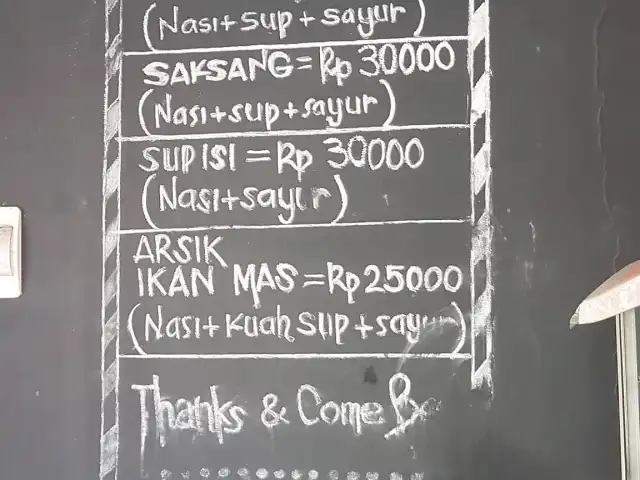 (Nasi+sup+sayur)
SAKSANG=Rp 30000
(Nasi+sup+sayur)
SUP ISI=Rp 30000
(Nasi+sayur)
ARSIK
IKAN MAS=Rp25000
(Nasi+Kuah SUP+sayur)
Thanks & Come